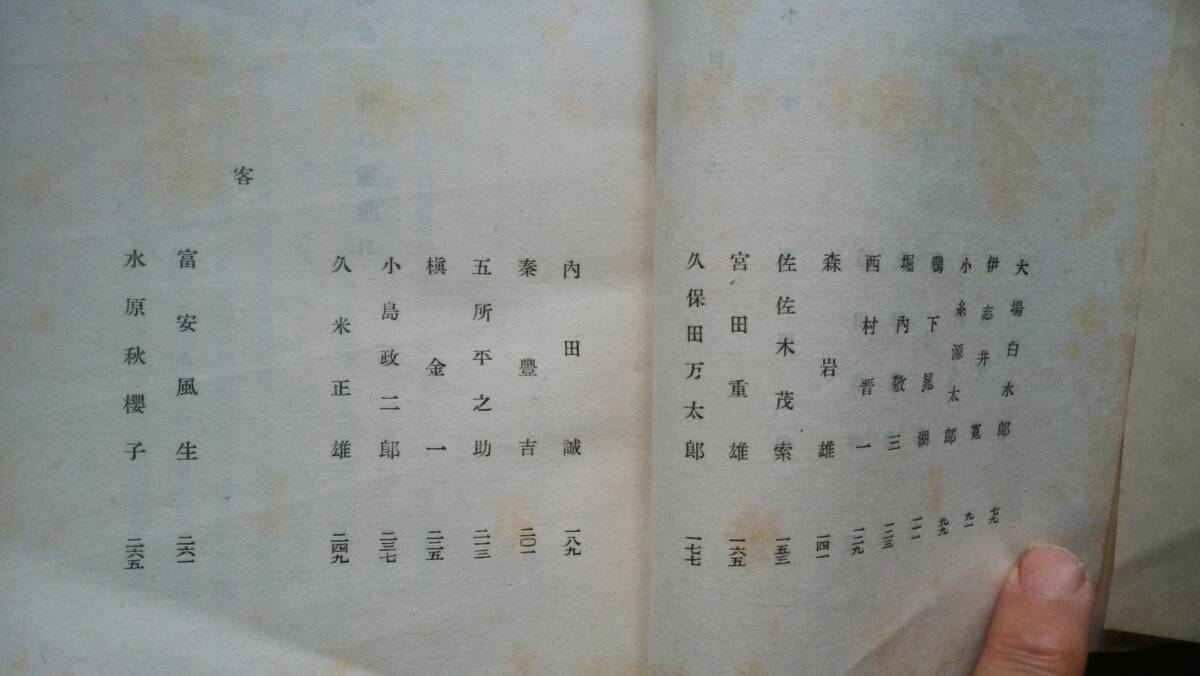 大場白水郎 七九
伊志井寛 九一
小糸源太郎 九九
鴨下晁湖 一一一
堀内敬三 一二三
西村晋一 一二九
森岩雄 一四一
佐佐木茂索 一五三
宮田重雄 一六五
久保田万太郎 一七七
內田誠 一八九
秦豐吉 二〇一
五所平之助 二一三
槇金一 二二五
小島政二郎 二三七
久米正雄 二四九
客
富安風生 二六一
水原秋櫻子 二六五